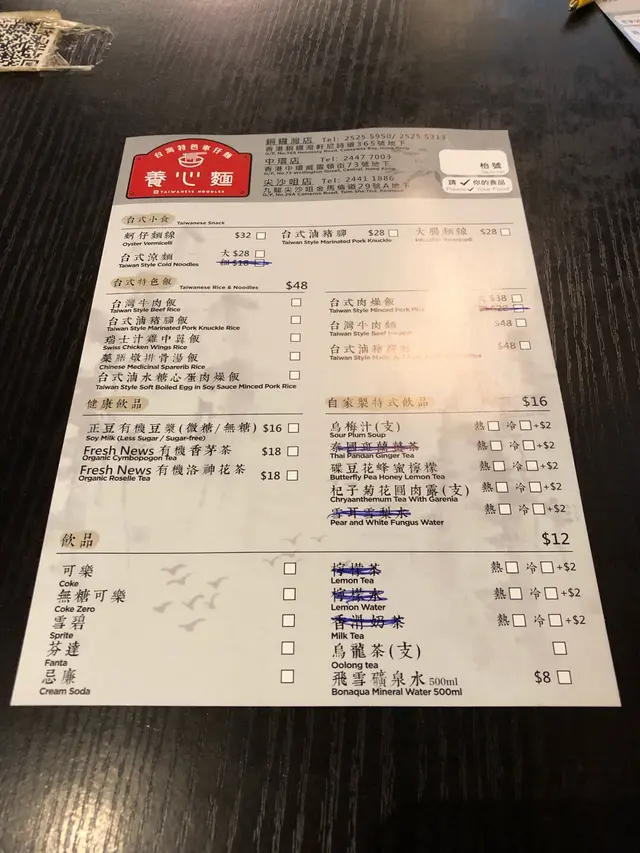 台灣特色車仔麵
養心麵
TAIWANESE NOODLES
銅鑼灣店 Tel: 2525 5950/ 2525 5313
香港銅鑼灣軒尼詩道365號地下
中環店 Tel: 2447 7003
香港中環威靈頓街73號地下
G/F, No.73 Wellington Street, Central, Hong Kong
尖沙咀店 Tel: 2441 1886
九龍尖沙咀金馬倫道29號A地下
枱號
請 ✓ 你的食品
Please ✓ Your Food
台式小食 Taiwanese Snack
蚵仔麵線 $32
Oyster Vermicelli
台式滷豬腳 $28
Taiwan Style Marinated Pork Knuckle
大腸麵線 $28
台式涼麵 大 $28
Taiwan Style Cold Noodles 細 $18
台式特色飯 Taiwanese Rice & Noodles $48
台灣牛肉飯
Taiwan Style Beef Rice
台式滷豬腳飯
Taiwan Style Marinated Pork Knuckle Rice
瑞士汁雞中翼飯
Swiss Chicken Wings Rice
藥膳燉排骨湯飯
Chinese Medicinal Sparerib Rice
台式滷水糖心蛋肉燥飯
Taiwan Style Soft Boiled Egg in Soy Sauce Minced Pork Rice
台式肉燥飯 $38
Taiwan Style Minced Pork
台灣牛肉麵 $48
Taiwan Style Beef
台式滷豬腳 $48
健康飲品
正豆有機豆漿(微糖/無糖) $16
Soy Milk (Less Sugar / Sugar-free)
Fresh News 有機香茅茶 $18
Organic Cymbopogon Tea
Fresh News 有機洛神花茶 $18
Organic Roselle Tea
自家製特式飲品 $16
烏梅汁(支) 熱 冷 +$2
Sour Plum Soup
泰國斑蘭薑茶 熱 冷 +$2
Thai Pandan Ginger Tea
碟豆花蜂蜜檸檬 熱 冷 +$2
Butterfly Pea Honey Lemon Tea
杞子菊花圓肉露(支) 熱 冷 +$2
Chryaanthemum Tea With Garenia
雪耳雪梨水 熱 冷 +$2
Pear and White Fungus Water
飲品 $12
可樂
Coke
無糖可樂
Coke Zero
雪碧
Sprite
芬達
Fanta
忌廉
Cream Soda
檸檬茶 熱 冷 +$2
Lemon Tea
檸檬水 熱 冷 +$2
Lemon Water
香滑奶茶 熱 冷 +$2
Milk Tea
烏龍茶(支)
Oolong tea
飛雪礦泉水 500ml $8
Bonaqua Mineral Water 500ml